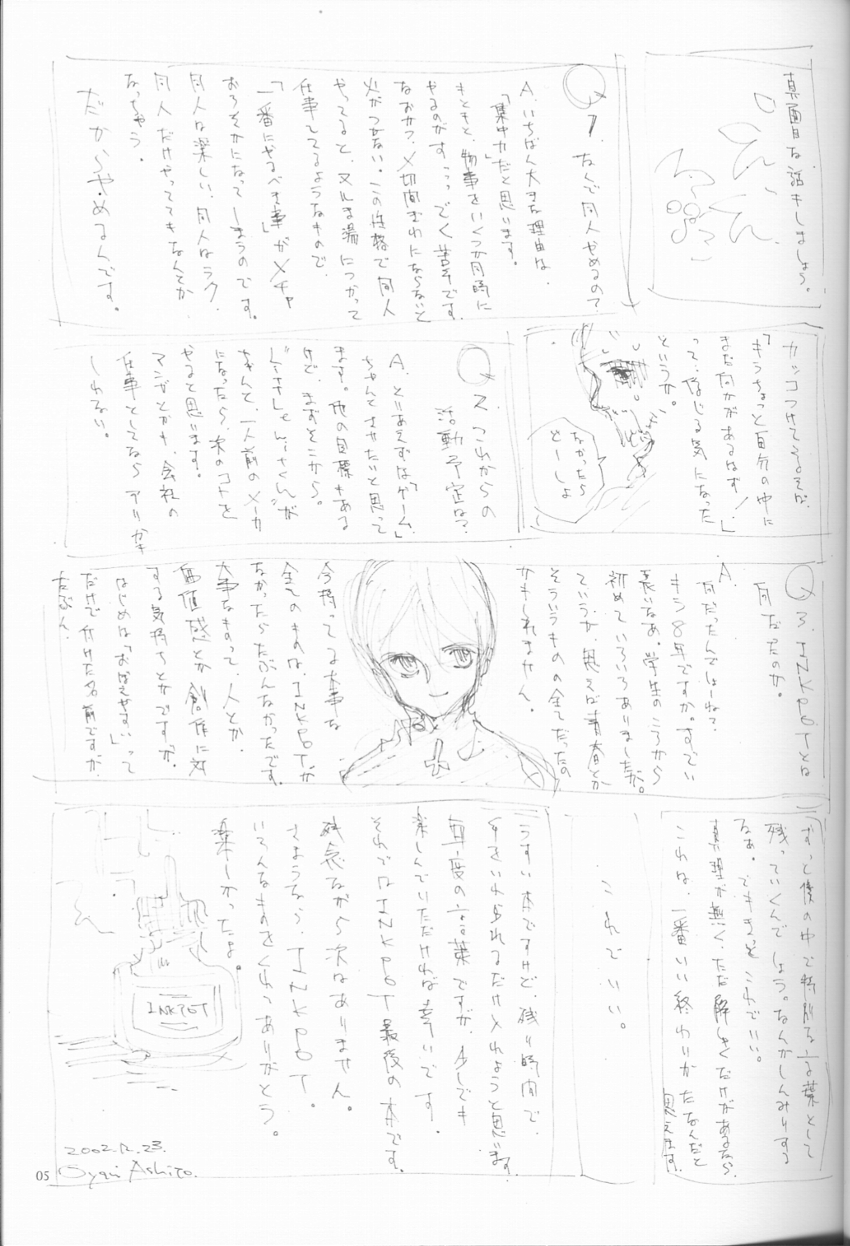 真面目な話をしましょう。
Q1. なんで同人やめるの?
A. いちばん大きな理由は、
「集中力」だと思います。
もともと、物事をいくつか同時に
やるのがすっっごく苦手です。
なおかつ、〆切間ぎわにならないと
火がつかない。この性格で同人
やってると、ヌルま湯につかって
仕事してるようなもので、
「一番にやるべき事」がメチャ
おろそかになってしまうのです。
同人は楽しい、同人はラク、
同人だけやってても
なっちゃう。
だからやめるんです。
カッコつけて
「もうちょっと自分の中に
まだ何かがあるはず!」
って、信じる気になった
というか。
なかったら
どーしよ
Q2. これからの
活動予定は?
A. とりあえずは「ゲーム」
ちゃんとさせたいと思って
ます。他の目標もある
けど、まずそこから。
ちゃんと、一人前のメーカー
になったら、次のコトを
やると思います。
マンガとかも、会社の
仕事としてなら アリかも
しれない。
Q3. INKPOTとは
何だったのか。
A.
何だったんでしょーねえ?
もう8年ですか。すごい
長いなあ。学生のころから
初めていろいろありましたが。
ていうか、思えば青春とか
そういうものの全てだったの
かもしれません。
今持ってる大事な
全てのものは、INKPOTが
なかったらたぶんなかったです。
大事なものって、人とか、
価値感とか創作に対
する気持ちとかですか。
はじめは「おぼえやすい」って
だけで付けた名前ですが、
たぶん、
ずっと僕の中で特別な言葉として
残っていくんでしょう。なんかしんみりする
なぁ。でもきっとこれでいい。
真理が無く、ただ解しゃくだけがあるなら、
これは、一番いい終わりかたなんだと
思えます。
これでいい。
うすい本ですけど、残り時間で、
手をいれられるだけ入れようと思います。
毎度の言葉ですが、少しでも
楽しんでいただければ幸いです。
それではINKPOT最後の本です。
残念ながら次はありません。
さようなら、INKPOT。
いろんなものをくれてありがとう。
楽しかったよ。
INKPOT
2002.12.23.
Oyari Ashito.
05